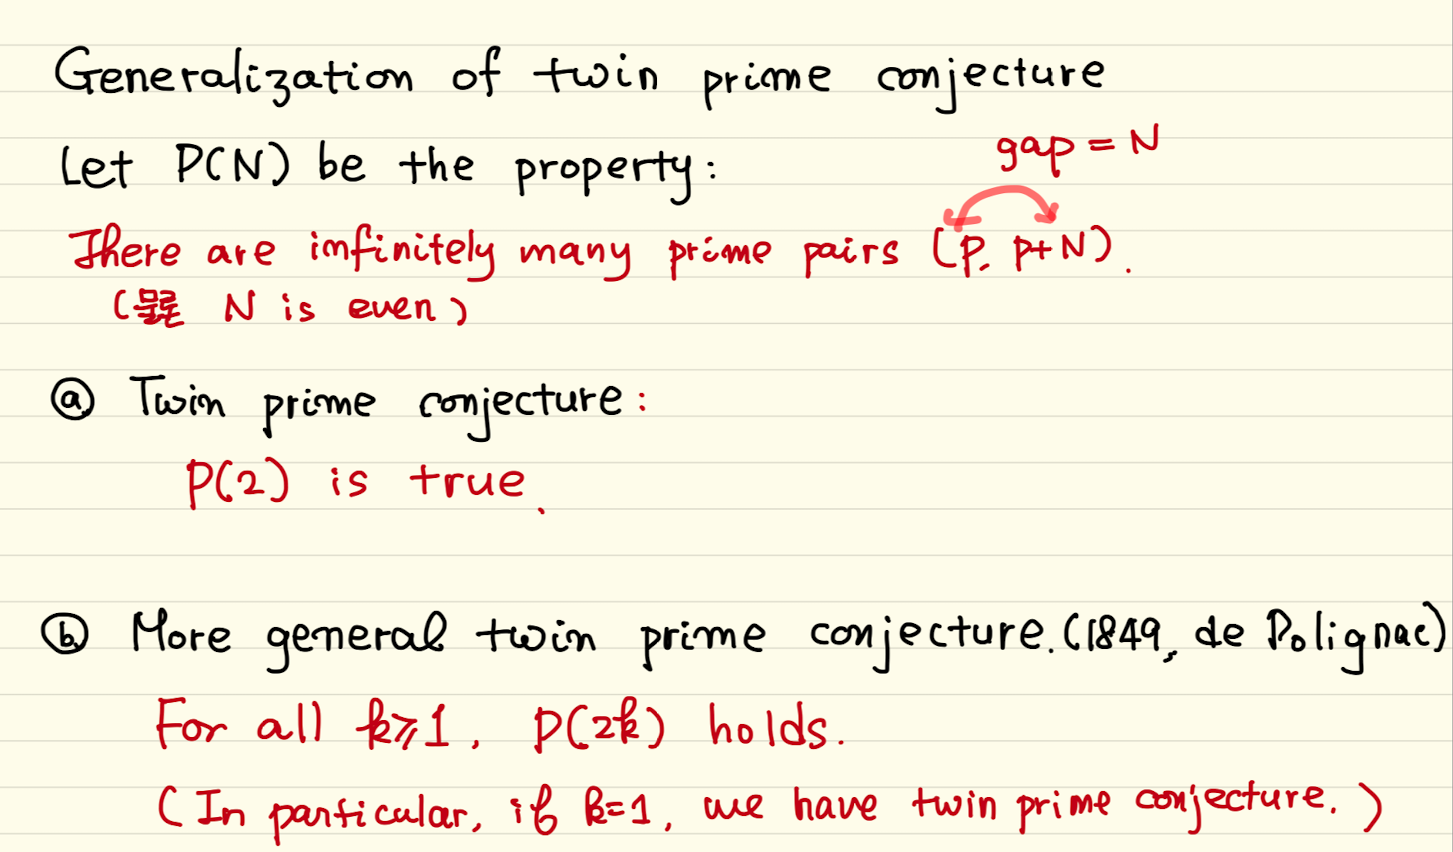 Generalization of twin prime conjecture
Let P(N) be the property:
gap = N
There are infinitely many prime pairs (p, p+N).
(물론 N is even)
ⓐ Twin prime conjecture:
P(2) is true.
ⓑ More general twin prime conjecture. (1849, de Polignac)
For all k⩾1, P(2k) holds.
(In particular, if k=1, we have twin prime conjecture.)